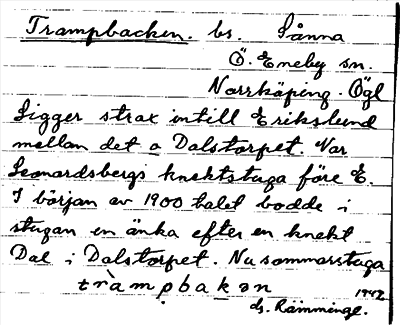 Trampbacken. bs. Sånna
Ö. Eneby sn.
Norrköping. Ögl
Ligger strax intill Erikslund
mellan det o Dalstorpet. Var
Leonardsbergs knektstuga före E.
I början av 1900 talet bodde i
stugan en änka efter en knekt
Dal i Dalstorpet. Nu sommarstuga
tràmpbakən 1942
ds. Ramminge.